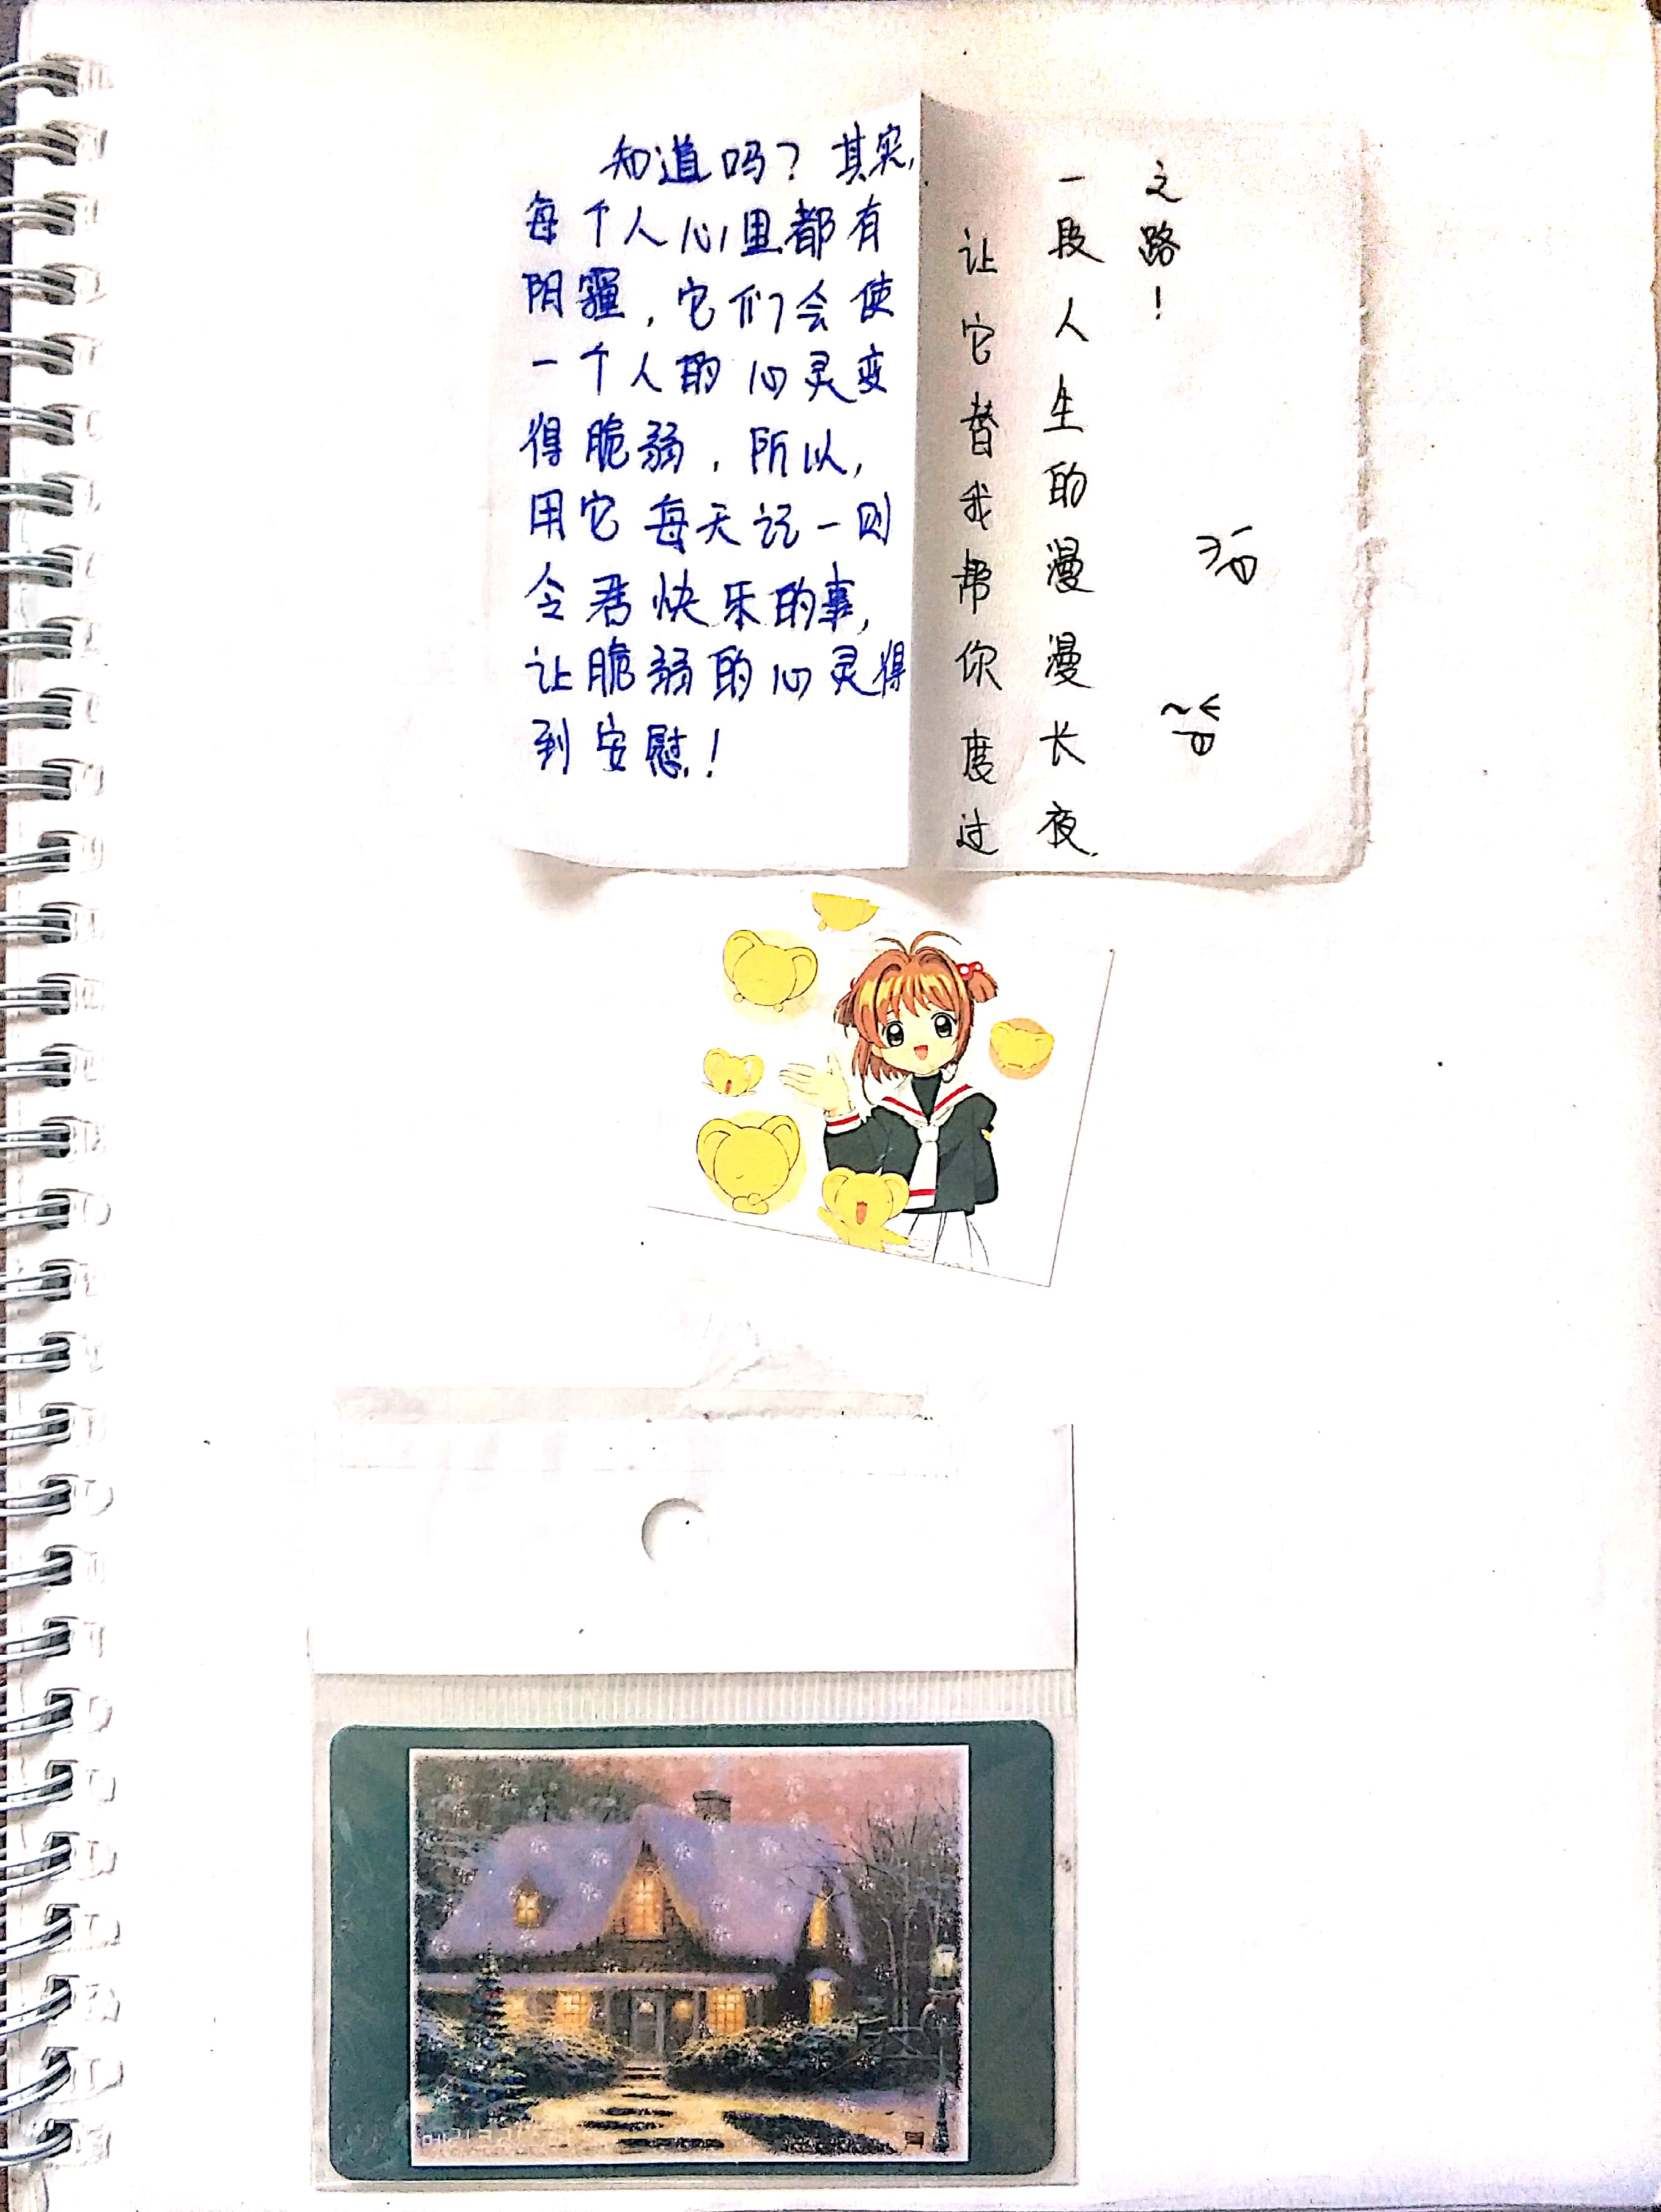 知道吗？其实，
每个人心里都有
阴霾，它们会使
一个人的心灵变
得脆弱，所以，
用它每天记一则
令君快乐的事，
让脆弱的心灵得
到安慰！
让它替我帮你度过
一段人生的漫漫长夜
之路！